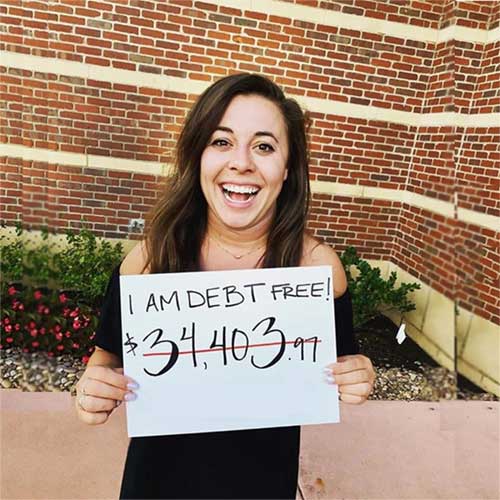 I AM DEBT FREE!
$34,403.97